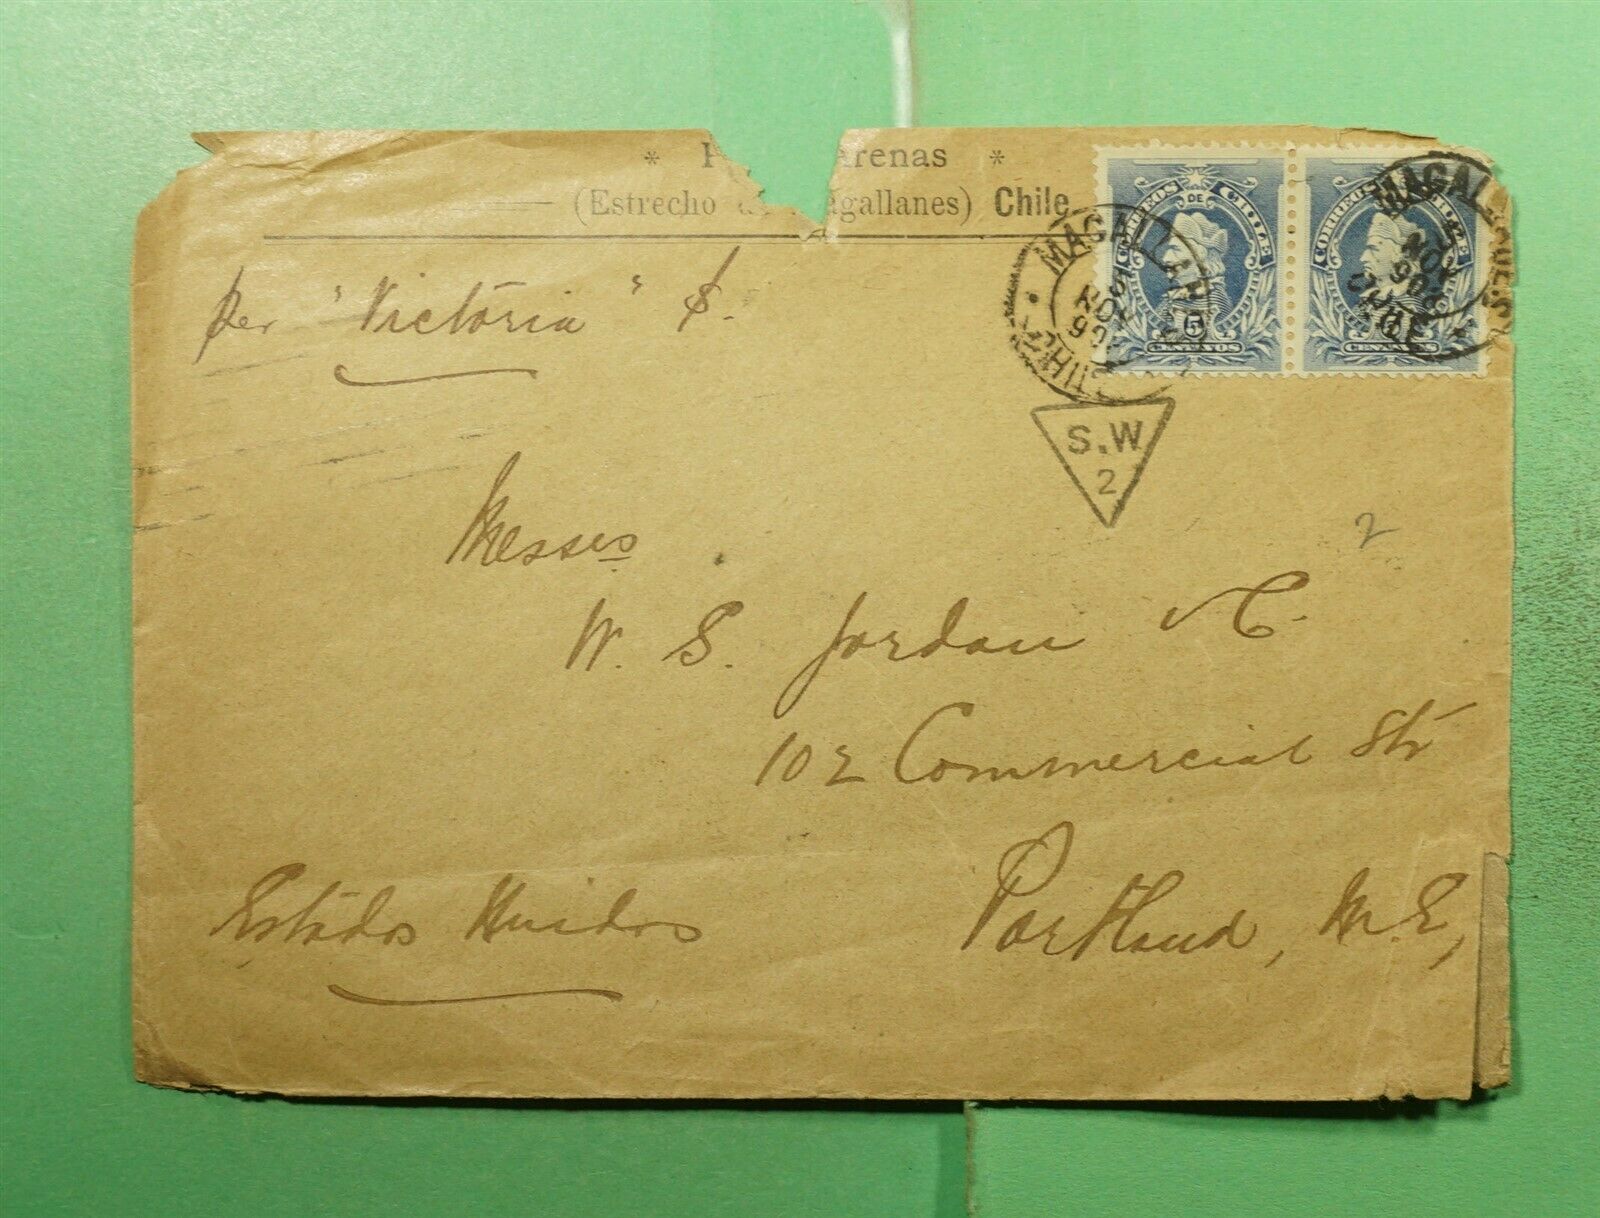 * P Arenas *
(Estrecho de Magallanes) Chile
CORREOS DE CHILE
5
CENTAVOS
CORREOS DE CHILE
CENTAVOS
MAGALLAN
NOV
MAGALLANES
NOV
CHILE
per "Victoria" S.
S.W
2
2
Messrs
W. S. Jordan & C.
102 Commercial Str
Portland, M.E,
Estados Unidos